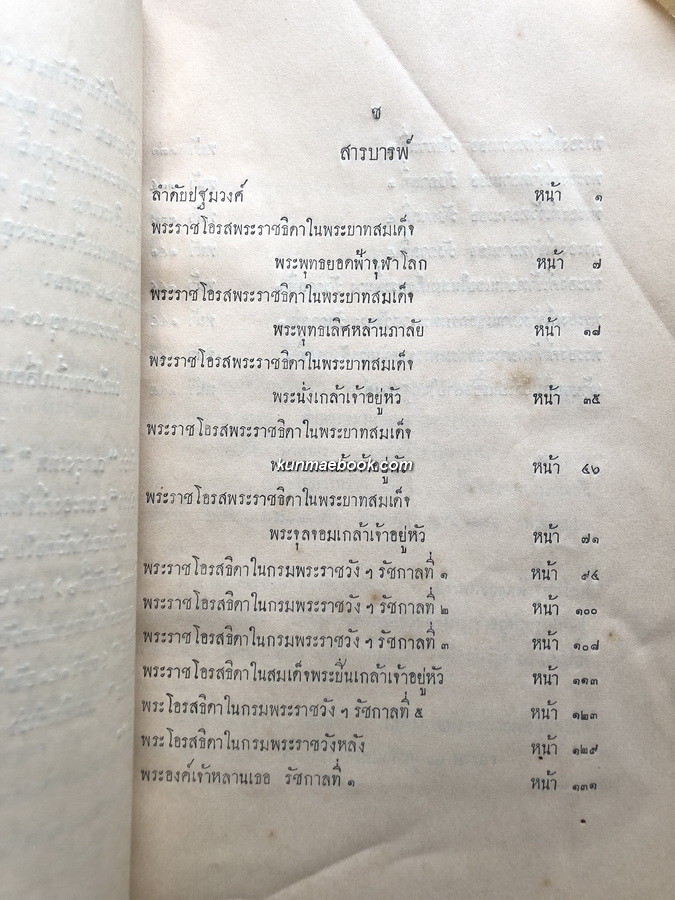 ซ
สารบารพ์
ลำดับปฐมวงศ์ หน้า ๑
พระราชโอรสพระราชธิดาในพระบาทสมเด็จ
พระพุทธยอดฟ้าจุฬาโลก หน้า ๗
พระราชโอรสพระราชธิดาในพระบาทสมเด็จ
พระพุทธเลิศหล้านภาลัย หน้า ๑๘
พระราชโอรสพระราชธิดาในพระบาทสมเด็จ
พระนั่งเกล้าเจ้าอยู่หัว หน้า ๓๕
พระราชโอรสพระราชธิดาในพระบาทสมเด็จ
kunmaebook.com หน้า ๔๖
พระราชโอรสพระราชธิดาในพระบาทสมเด็จ
พระจุลจอมเกล้าเจ้าอยู่หัว หน้า ๗๑
พระราชโอรสธิดาในกรมพระราชวัง ๆ รัชกาลที่ ๑ หน้า ๙๔
พระราชโอรสธิดาในกรมพระราชวัง ๆ รัชกาลที่ ๒ หน้า ๑๐๐
พระราชโอรสธิดาในกรมพระราชวัง ๆ รัชกาลที่ ๓ หน้า ๑๐๘
พระราชโอรสธิดาในสมเด็จพระปิ่นเกล้าเจ้าอยู่หัว หน้า ๑๑๓
พระโอรสธิดาในกรมพระราชวัง ๆ รัชกาลที่ ๕ หน้า ๑๒๓
พระโอรสธิดาในกรมพระราชวังหลัง หน้า ๑๒๙
พระองค์เจ้าหลานเธอ รัชกาลที่ ๑ หน้า ๑๓๑